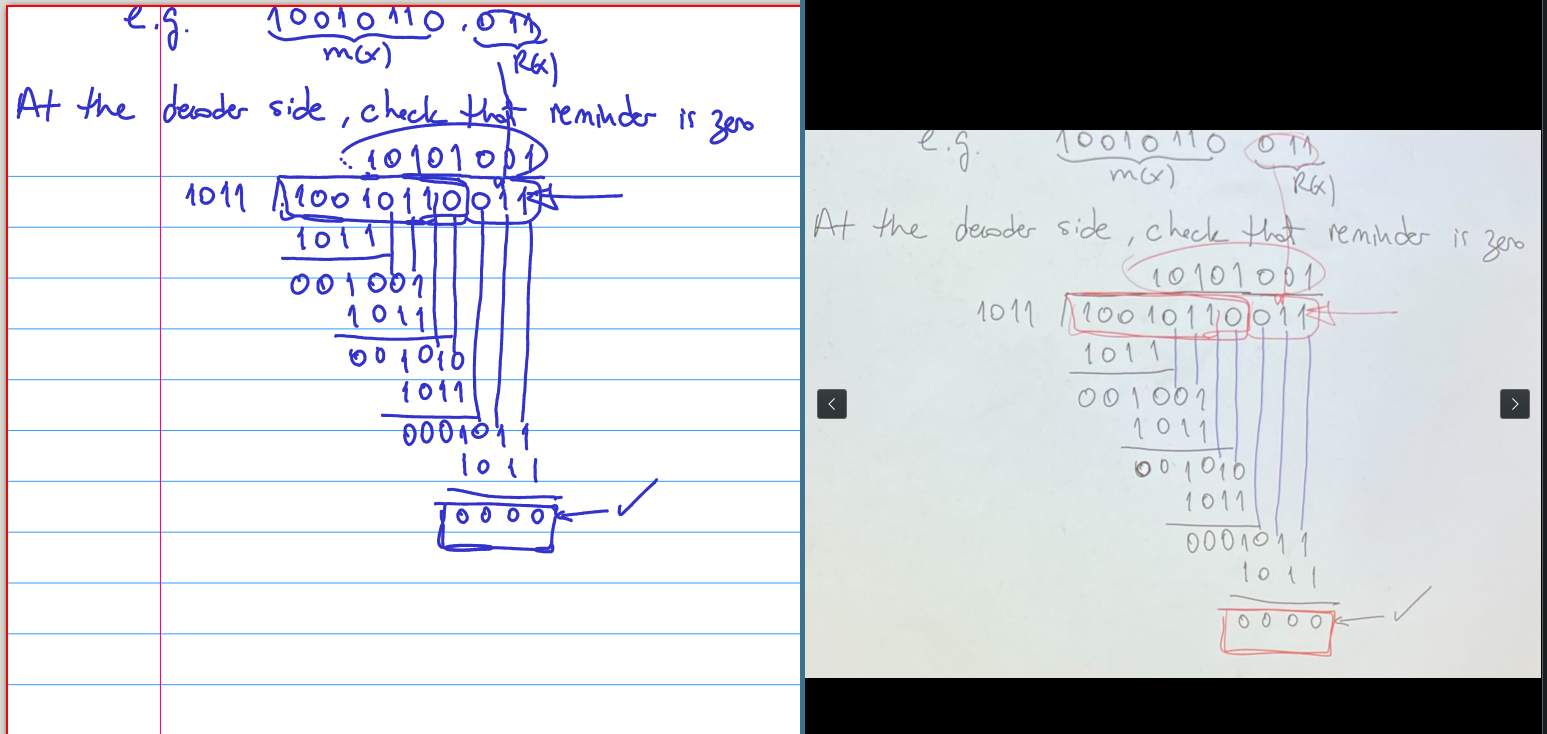 e.g. 10010110 . 011
m(x) R(x)
At the decoder side, check that reminder is zero
10101001
1011 10010110 011
1011
001001
1011
001010
1011
0001011
1011
0000 ✓
e.g. 10010110 011
m(x) R(x)
At the decoder side, check that reminder is zero
10101001
1011 10010110 011
1011
001001
1011
001010
1011
0001011
1011
0000 ✓